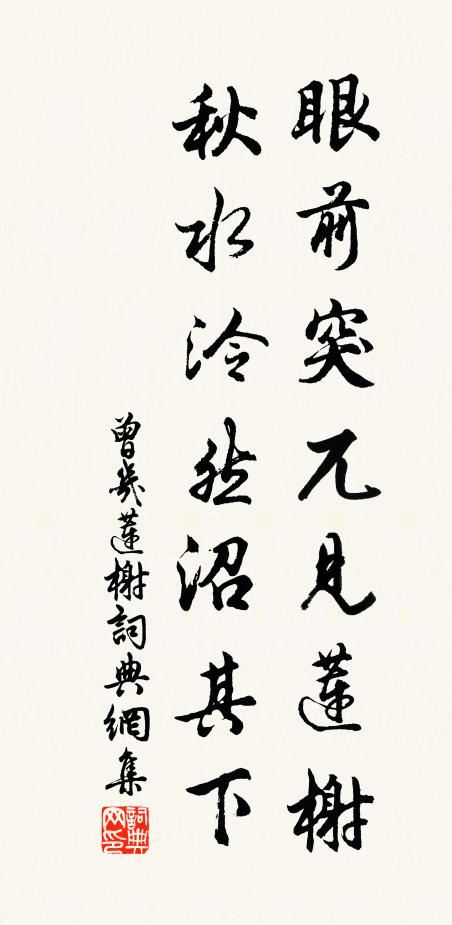 眼前突兀見蓮榭
秋水泠然沼其下
曾幾蓮榭詞典網集
詞典网印